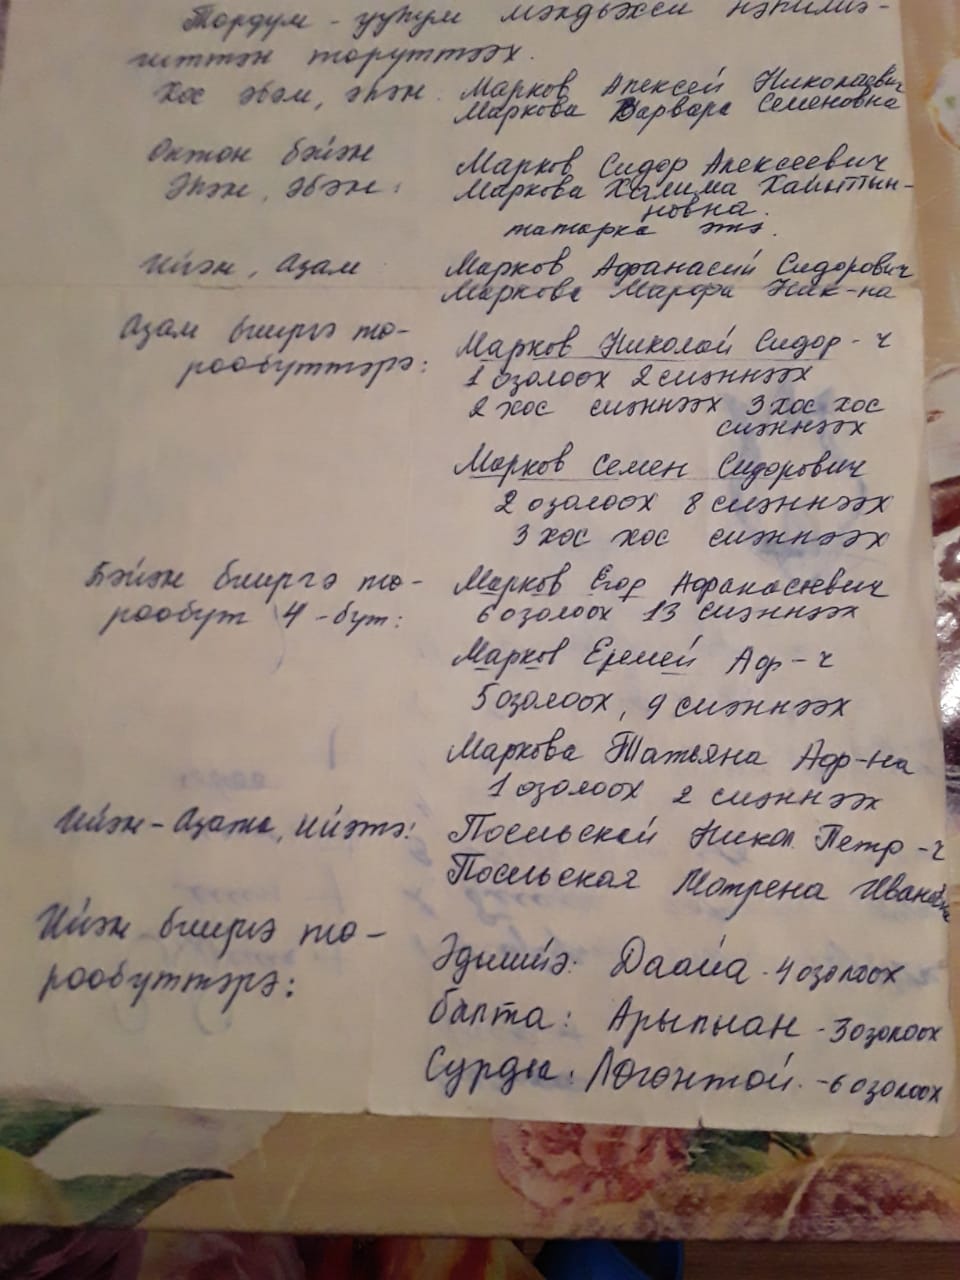 Тордум - ууһум Мэҥдьэхси нэһилиэ-
гиттэн төрүттээх.
Хос эбэм, эһэм: Марков Алексей Николаевич
Маркова Варвара Семеновна
Онтон бэйэм Марков Сидор Алексеевич
Эһэм, эбэм: Маркова Халима Хайытын-
новна.
татарка этэ.
Ийэм, Аҕам Марков Афанасий Сидорович
Маркова Марфа Ник-на
Аҕам бииргэ тө- Марков Николай Сидор-ч
рөөбүттэрэ: 1 оҕолоох 2 сиэннээх
2 хос сиэннээх 3 хос хос
сиэннээх
Марков Семен Сидорович
2 оҕолоох 8 сиэннээх
3 хос хос сиэннээх
Бэйэм бииргэ тө- Марков Егор Афанасьевич
рөөбүт 4-бүт: 6 оҕолоох 13 сиэннээх
Марков Еремей Аф-ч
5 оҕолоох, 9 сиэннээх
Маркова Татьяна Аф-на
1 оҕолоох 2 сиэннээх
Ийэм-Аҕата, ийэтэ: Посельской Никол. Петр-ч
Посельская Мотрена Ивановна
Ийэм бииргэ тө- Эдьиийэ: Даайа - 4 оҕолоох
рөөбүттэрэ: балта: Арыпыан - 3 оҕолоох
Сурдьа: Лөгөнтөй. - 6 оҕолоох